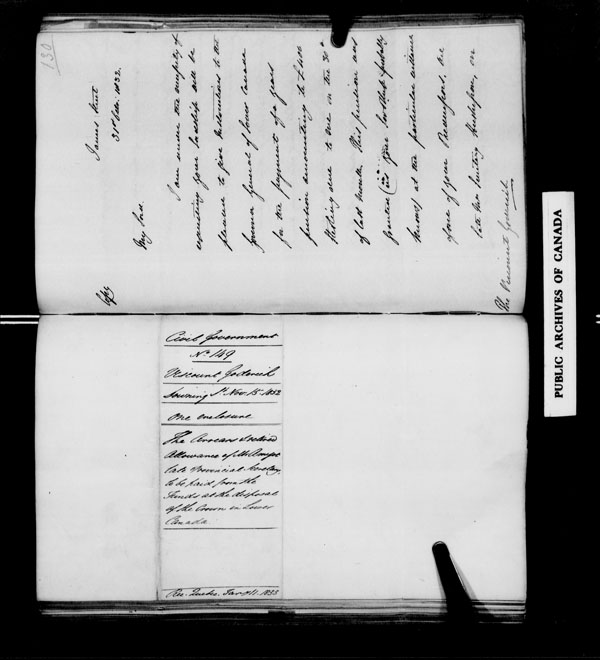 130
Copy
James Street
31st Oct. 1832.
My Lord,
I am under the necessity of
requesting your Lordship will be
pleased to give Instructions to the
Governor General of Lower Canada
for the payment of a years
pension amounting to £
Sterling due to me on the 30th
of last month. This pension was
granted (as your Lordship probably
knows) at the particular instance
of one of your Predecessors, the
late Mr. Huskisson, on
The Viscount Goderich
Civil Government
No. 149
Viscount Goderich
Downing St. Nov. 15. 1832
One enclosure
The Arrears
Allowance of Mr. Amyot
late Provincial Secretary,
to be paid from the
Funds at the disposal
of the Crown in Lower
Canada
Rec. Quebec. Jan. 11. 1833
PUBLIC ARCHIVES OF CANADA